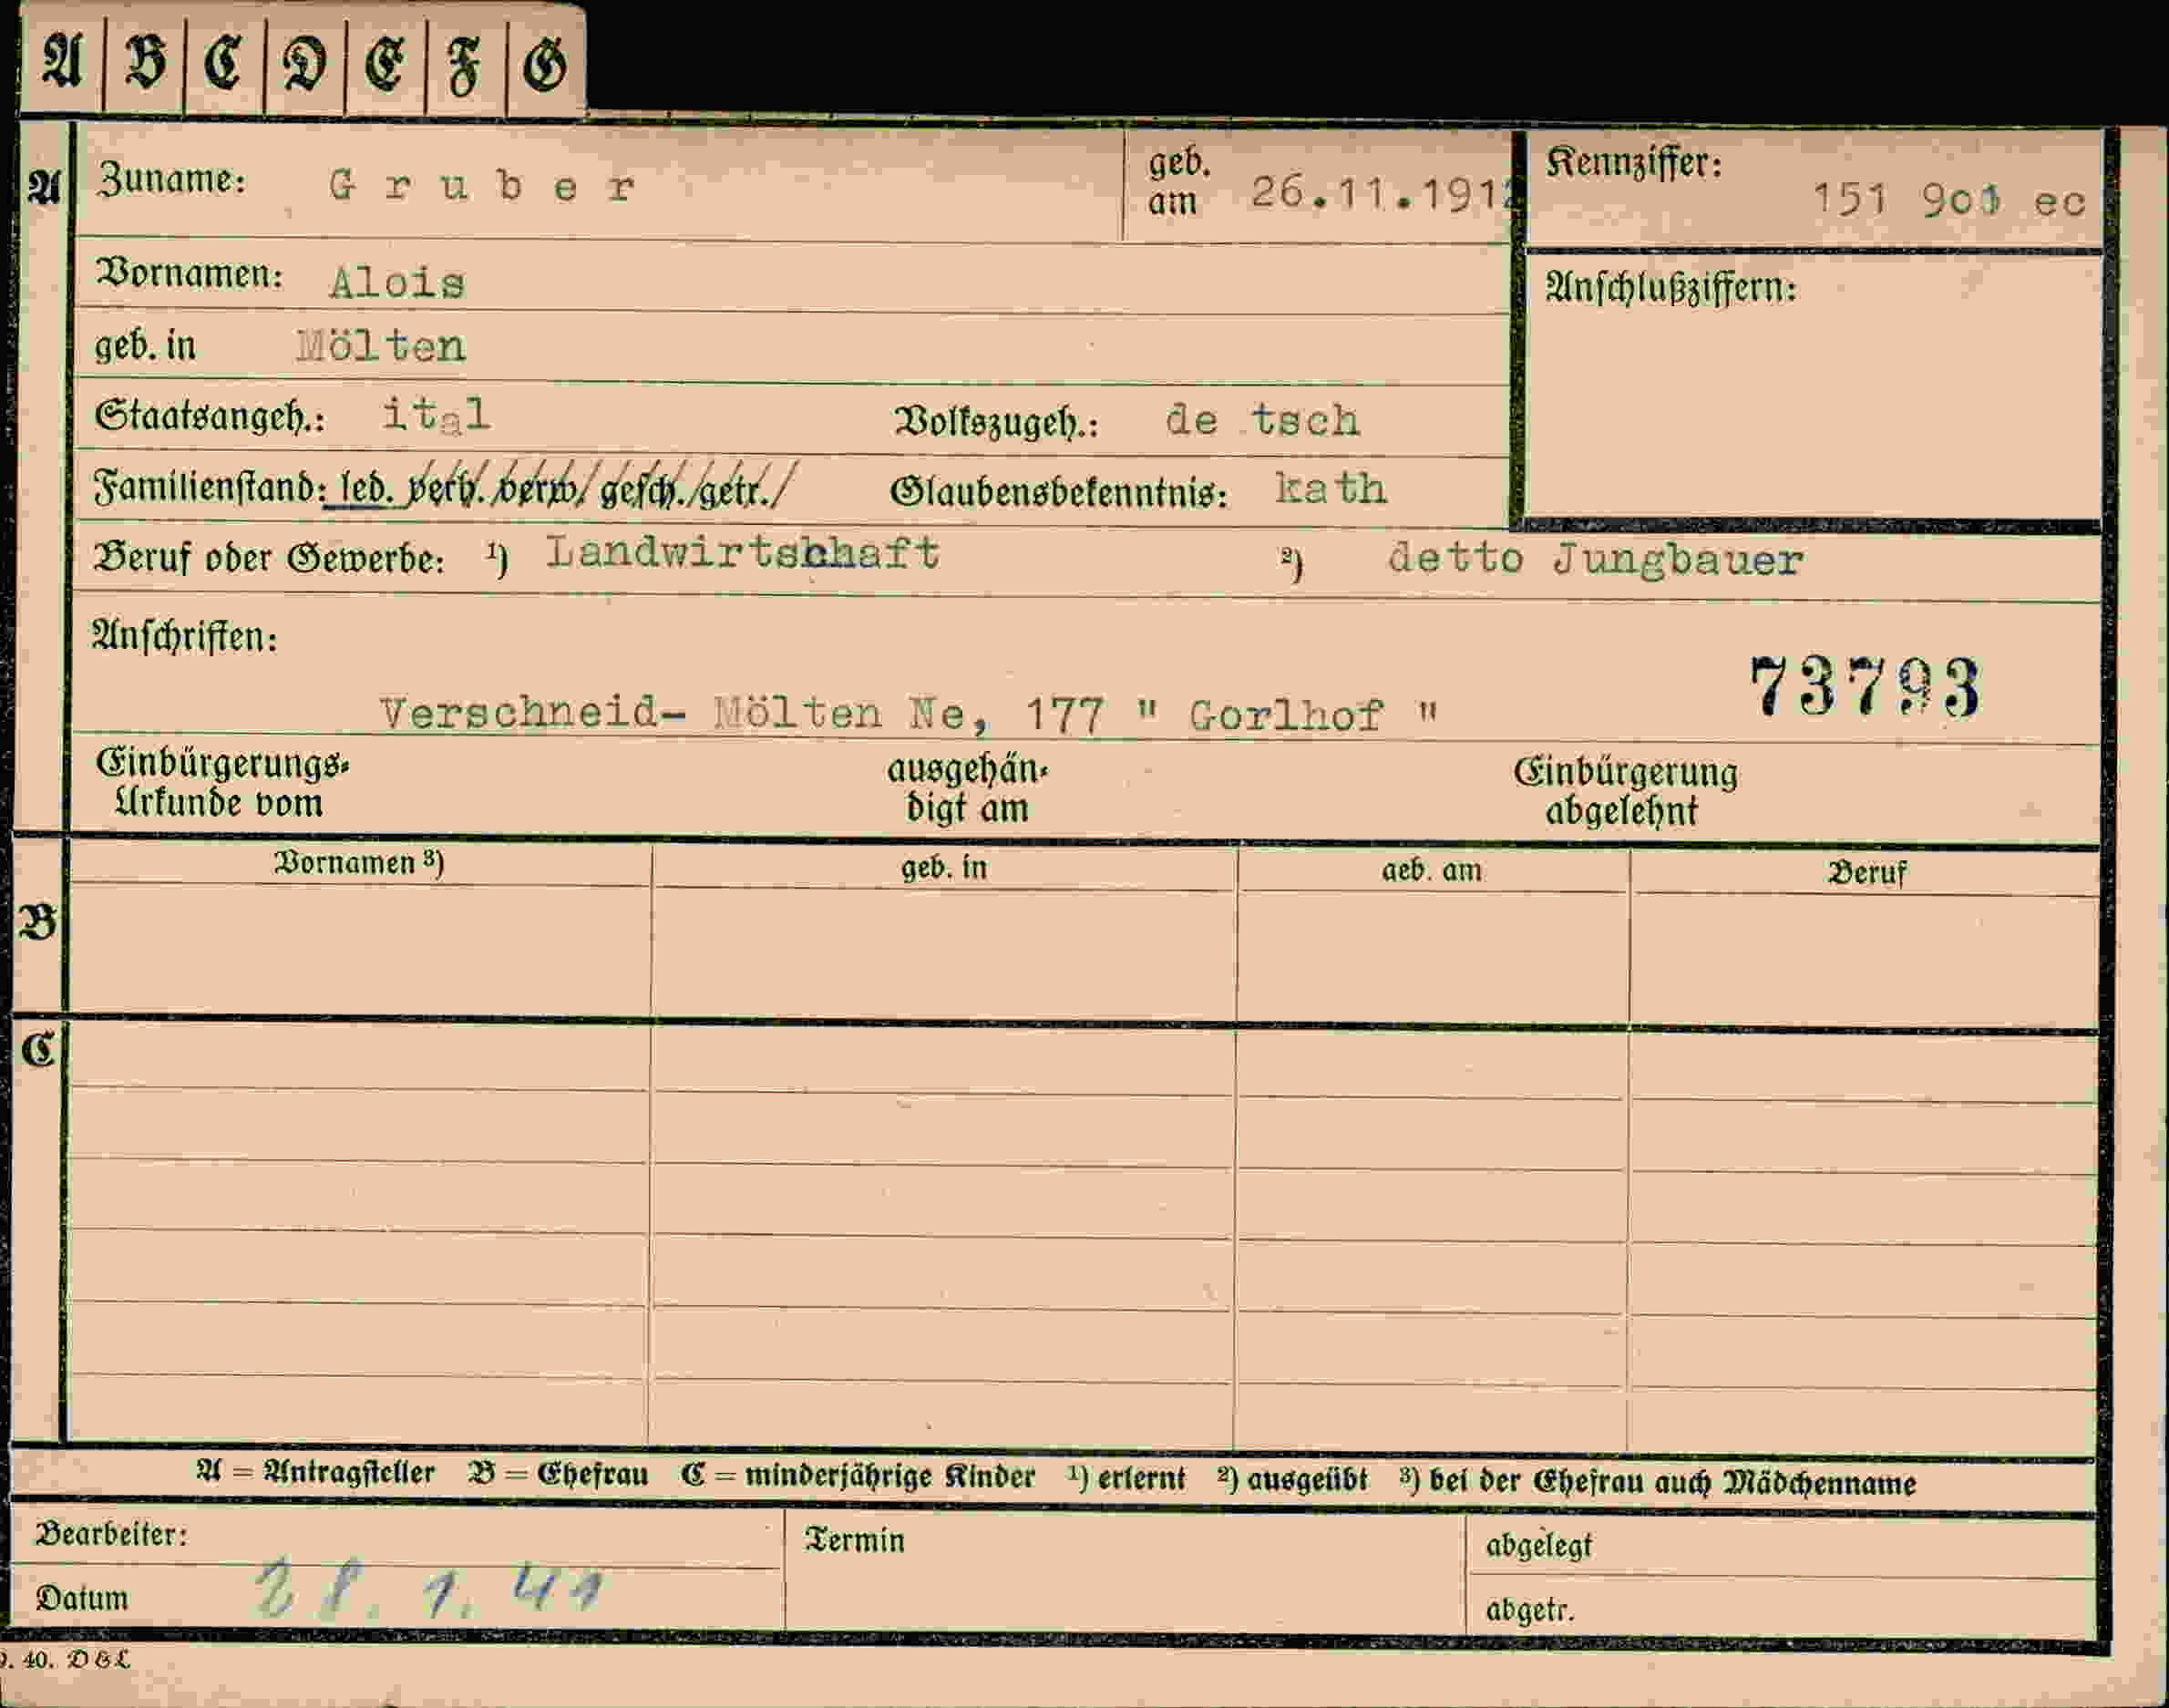 A B C D E F G
A Zuname: Gruber geb. am 26.11.191 Kennziffer: 151 ec
Vornamen: Alois Anschlußziffern:
geb. in Mölten
Staatsangeh.: ital Volkszugeh.: de tsch
Familienstand: led. verh. verw. gesch. getr. Glaubensbekenntnis: kath
Beruf oder Gewerbe: ¹) Landwirtshhaft ²) detto Jungbauer
Anschriften:
73793
Verschneid- Mölten Ne, 177 " Gorlhof "
Einbürgerungs- ausgehän- Einbürgerung
Urkunde vom digt am abgelehnt
Vornamen ³) geb. in geb. am Beruf
B
C
A = Antragsteller B = Ehefrau C = minderjährige Kinder ¹) erlernt ²) ausgeübt ³) bei der Ehefrau auch Mädchenname
Bearbeiter: Termin abgelegt
Datum 28. 1. 41 abgetr.
9. 40. D&L